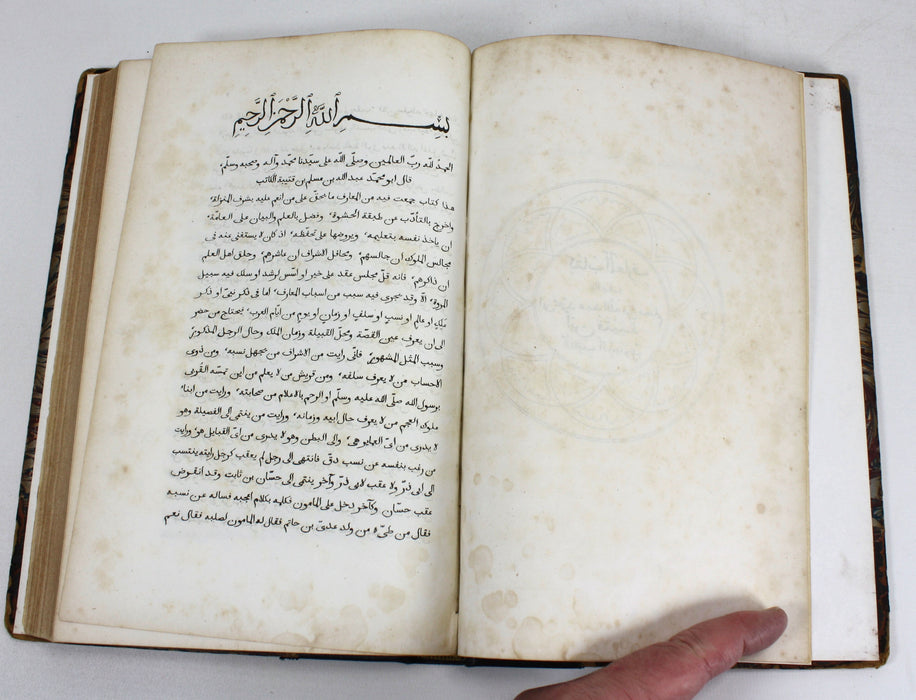 بِسْمِ ٱللَّهِ ٱلرَّحْمٰنِ ٱلرَّحِيمِ
الحمد لله ربّ العالمين وصلّى الله على سيّدنا محمّد وآله وصحبه وسلّم،
قال ابو محمّد عبد الله بن مسلم بن قتيبة الكاتب
هذا كتاب جمعت فيه من المعارف ما يحقّ على من انعم عليه بشرف المنزلة،
واخرج بالتأدّب عن طبقة الحشوة، وفضل بالعلم والبيان على العامّة،
ان ياخذ نفسه بتعليمه، ويروضها على تحفّظه، اذ كان لا يستغنى عنه فى
مجالس الملوك ان جالسهم، ومحافل الاشراف ان عاشرهم، وحلق اهل العلم
ان ذاكرهم، فانه قلّ مجلس عقد على خير او اسّس لرشد او سلك فيه سبيل
المروة، الّا وقد يجرى فيه سبب من اسباب المعارف، اما فى ذكر نبىّ او ذكر
ملك او عالم او نسب او سلف او زمان او يوم من ايّام العرب، فيحتاج من حضر
الى ان يعرف عين القصّة ومحلّ القبيلة وزمان الملك وحال الرجل المذكور،
وسبب المثل المشهور، فانّى رايت من الاشراف من يجهل نسبه، ومن ذوى
الاحساب من لا يعرف سلفه، ومن قريش من لا يعلم من اين تمسّه القربى
برسول الله صلّى الله عليه وسلّم او الرحم بالاعلام من صحابته، ورايت من ابنا
ملوك العجم من لا يعرف حال ابيه وزمانه، ورايت من ينتمى الى الفصيلة وهو
لا يدرى من اىّ العماير هى، والى البطن وهو لا يدرى من اىّ القبايل هو، ورايت
من رغب بنفسه عن نسب دقّ فانتهى الى رجل لم يعقب كرجل رايته ينتسب
الى ابى ذرّ ولا عقب لابى ذرّ وآخر ينتمى الى حسّان بن ثابت وقد انقرض
عقب حسّان وكآخر دخل على المامون فكلمه بكلام اعجبه فساله عن نسبه
فقال من طىّء من ولد عدىّ بن حاتم فقال له المامون لصلبه فقال نعم